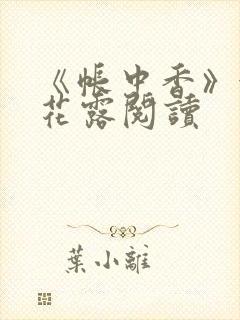 《帳中香》
花露閱讀
葉小離